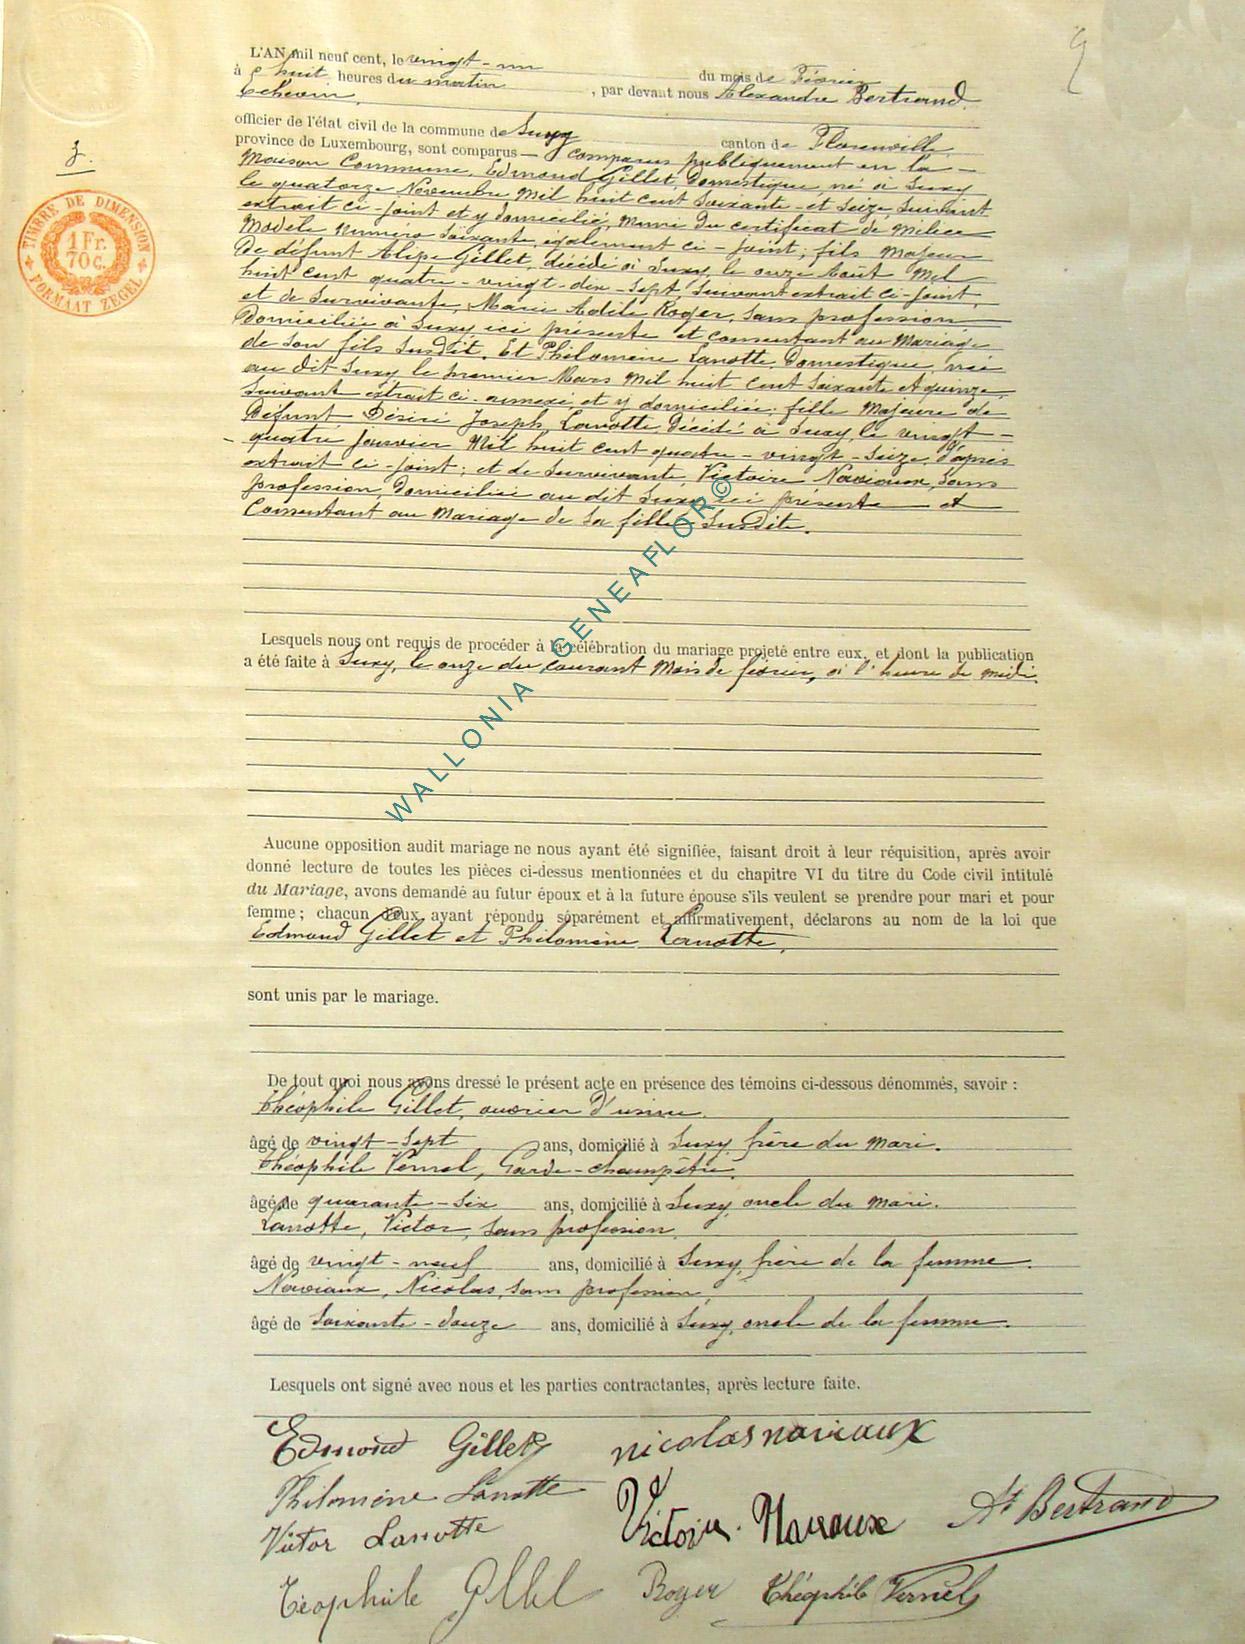 L'AN mil neuf cent, le vingt-un du mois de Février
à huit heures du matin, par devant nous Alexandre Bertrand
Echevin,
officier de l'état civil de la commune de Suxy canton de Florenville
province de Luxembourg, sont comparus — comparus publiquement en la
3.
Maison Commune, Edmond Gillet, Domestique, né à Suxy
le quatorze Novembre Mil huit cent soixante-et seize, suivant
extrait ci-joint et y domicilié, muni du certificat de Milice
Modèle numéro soixante, également ci-joint; fils Majeur
de défunt Alipe Gillet, décédé à Suxy, le onze Août Mil
huit cent quatre-vingt-dix-sept, suivant extrait ci-joint,
et de survivante, Marie Adèle Roger, sans profession
domiciliée à Suxy ici présente et consentant au Mariage
de son fils susdit. Et Philomène Lanotte, Domestique, née
au dit Suxy le premier Mars Mil huit cent soixante et quinze,
suivant extrait ci-annexé, et y domiciliée; fille Majeure de
défunt Désiré Joseph Lanotte, décédé à Suxy, le vingt-
quatre Janvier Mil huit cent quatre-vingt-seize, d'après
extrait ci-joint; et de survivante Victoire Naviaux, sans
profession, domiciliée au dit Suxy ici présente et
Consentant au Mariage de sa fille susdite.
TIMBRE DE DIMENSION
1 Fr.
70 c.
FORMAAT ZEGEL
WALLONIA GENEAFLOR©
Lesquels nous ont requis de procéder à la célébration du mariage projeté entre eux, et dont la publication
a été faite à Suxy, le onze du courant Mois de février, à l'heure de midi.
Aucune opposition audit mariage ne nous ayant été signifiée, faisant droit à leur réquisition, après avoir
donné lecture de toutes les pièces ci-dessus mentionnées et du chapitre VI du titre du Code civil intitulé
du Mariage, avons demandé au futur époux et à la future épouse s'ils veulent se prendre pour mari et pour
femme; chacun d'eux ayant répondu séparément et affirmativement, déclarons au nom de la loi que
Edmond Gillet et Philomène Lanotte,
sont unis par le mariage.
De tout quoi nous avons dressé le présent acte en présence des témoins ci-dessous dénommés, savoir :
Théophile Gillet, ouvrier d'usine
âgé de vingt-sept ans, domicilié à Suxy, frère du mari.
Théophile Vernel, Garde-champêtre
âgé de quarante-six ans, domicilié à Suxy, oncle du mari.
Lanotte, Victor, sans profession
âgé de vingt-neuf ans, domicilié à Suxy, frère de la femme.
Naviaux, Nicolas, sans profession,
âgé de soixante-douze ans, domicilié à Suxy, oncle de la femme.
Lesquels ont signé avec nous et les parties contractantes, après lecture faite.
Edmond Gillet nicolas naviaux
Philomène Lanotte
Victoire Naviaux At Bertrand
Victor Lanotte
Téophile Gillet Roger Théophile Vernel